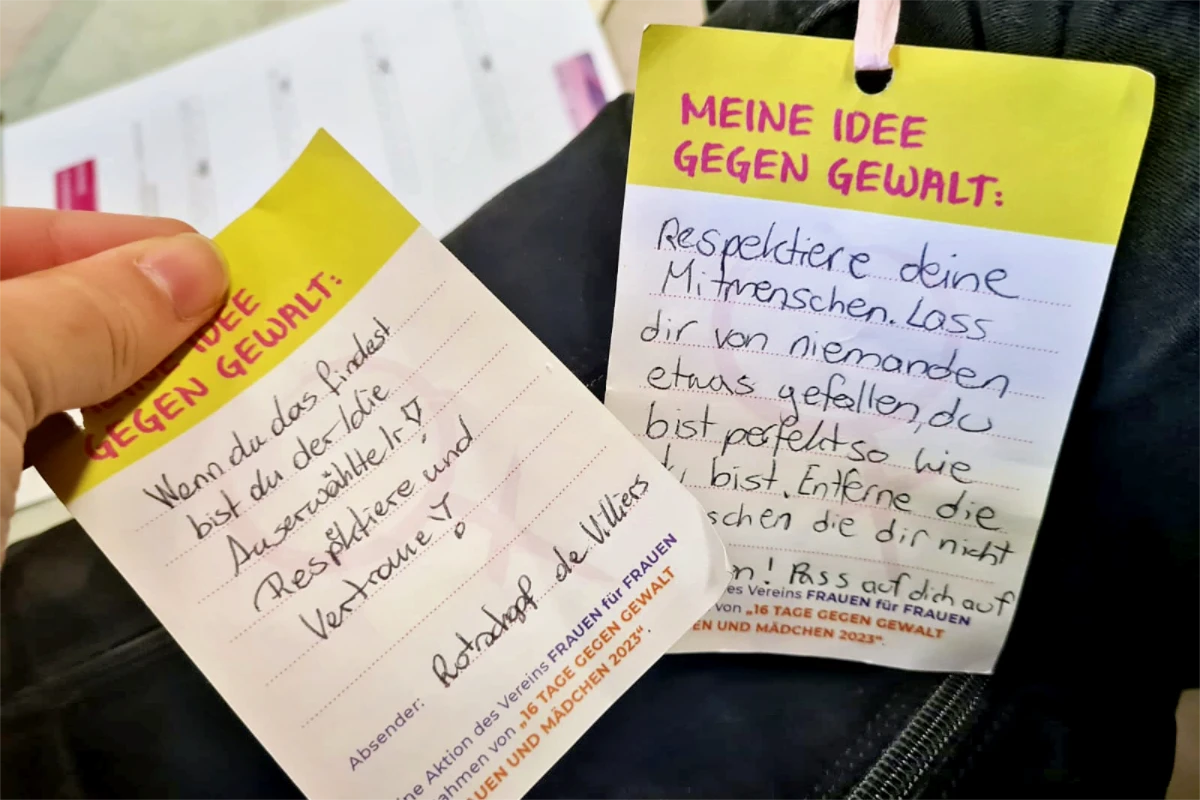 IDEE
GEGEN GEWALT:
Wenn du das findest
bist du der/die
Auserwählte/r!
Respektiere und
Vertraue!
Absender: Rotschopf de Villiers
ne Aktion des Vereins FRAUEN für FRAUEN
ahmen von „16 TAGE GEGEN GEWALT
AUEN UND MÄDCHEN 2023“.
MEINE IDEE
GEGEN GEWALT:
Respektiere deine
Mitmenschen. Lass
dir von niemanden
etwas gefallen, du
bist perfekt so wie
bist. Entferne die
schen die dir nicht
n! Pass auf dich auf
es Vereins FRAUEN für FRAUEN
von „16 TAGE GEGEN GEWALT
EN UND MÄDCHEN 2023“.